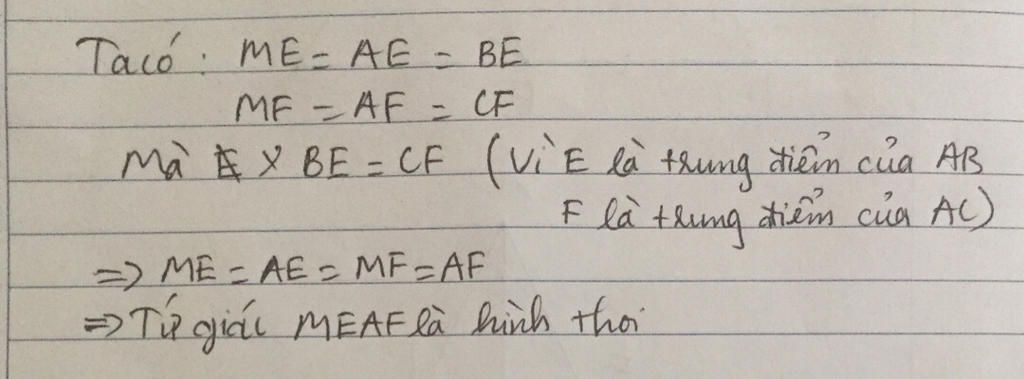 Ta có: ME = AE = BE
MF = AF = CF
Mà BE = CF (Vì E là trung điểm của AB
F là trung điểm của AC)
=> ME = AE = MF = AF
=> Tứ giác MEAF là hình thoi